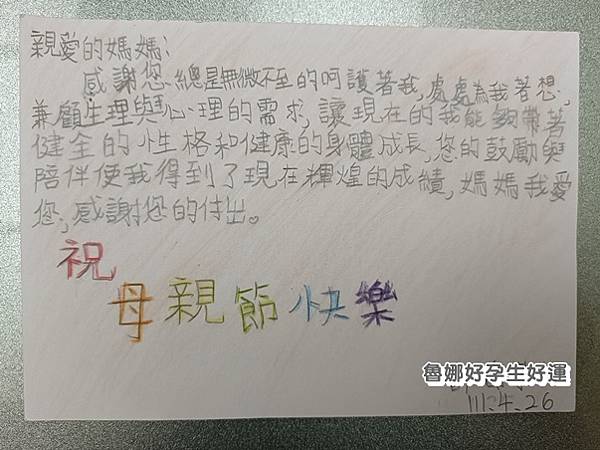 親愛的媽媽:
感謝您總是無微不至的呵護著我,處處為我著想,
兼顧生理與心理的需求,讓現在的我能夠帶著
健全的性格和健康的身體成長,您的鼓勵與
陪伴使我得到了現在輝煌的成績,媽媽我愛
您,感謝您的付出。
祝
母親節快樂
魯娜好孕生好運
111.4.26